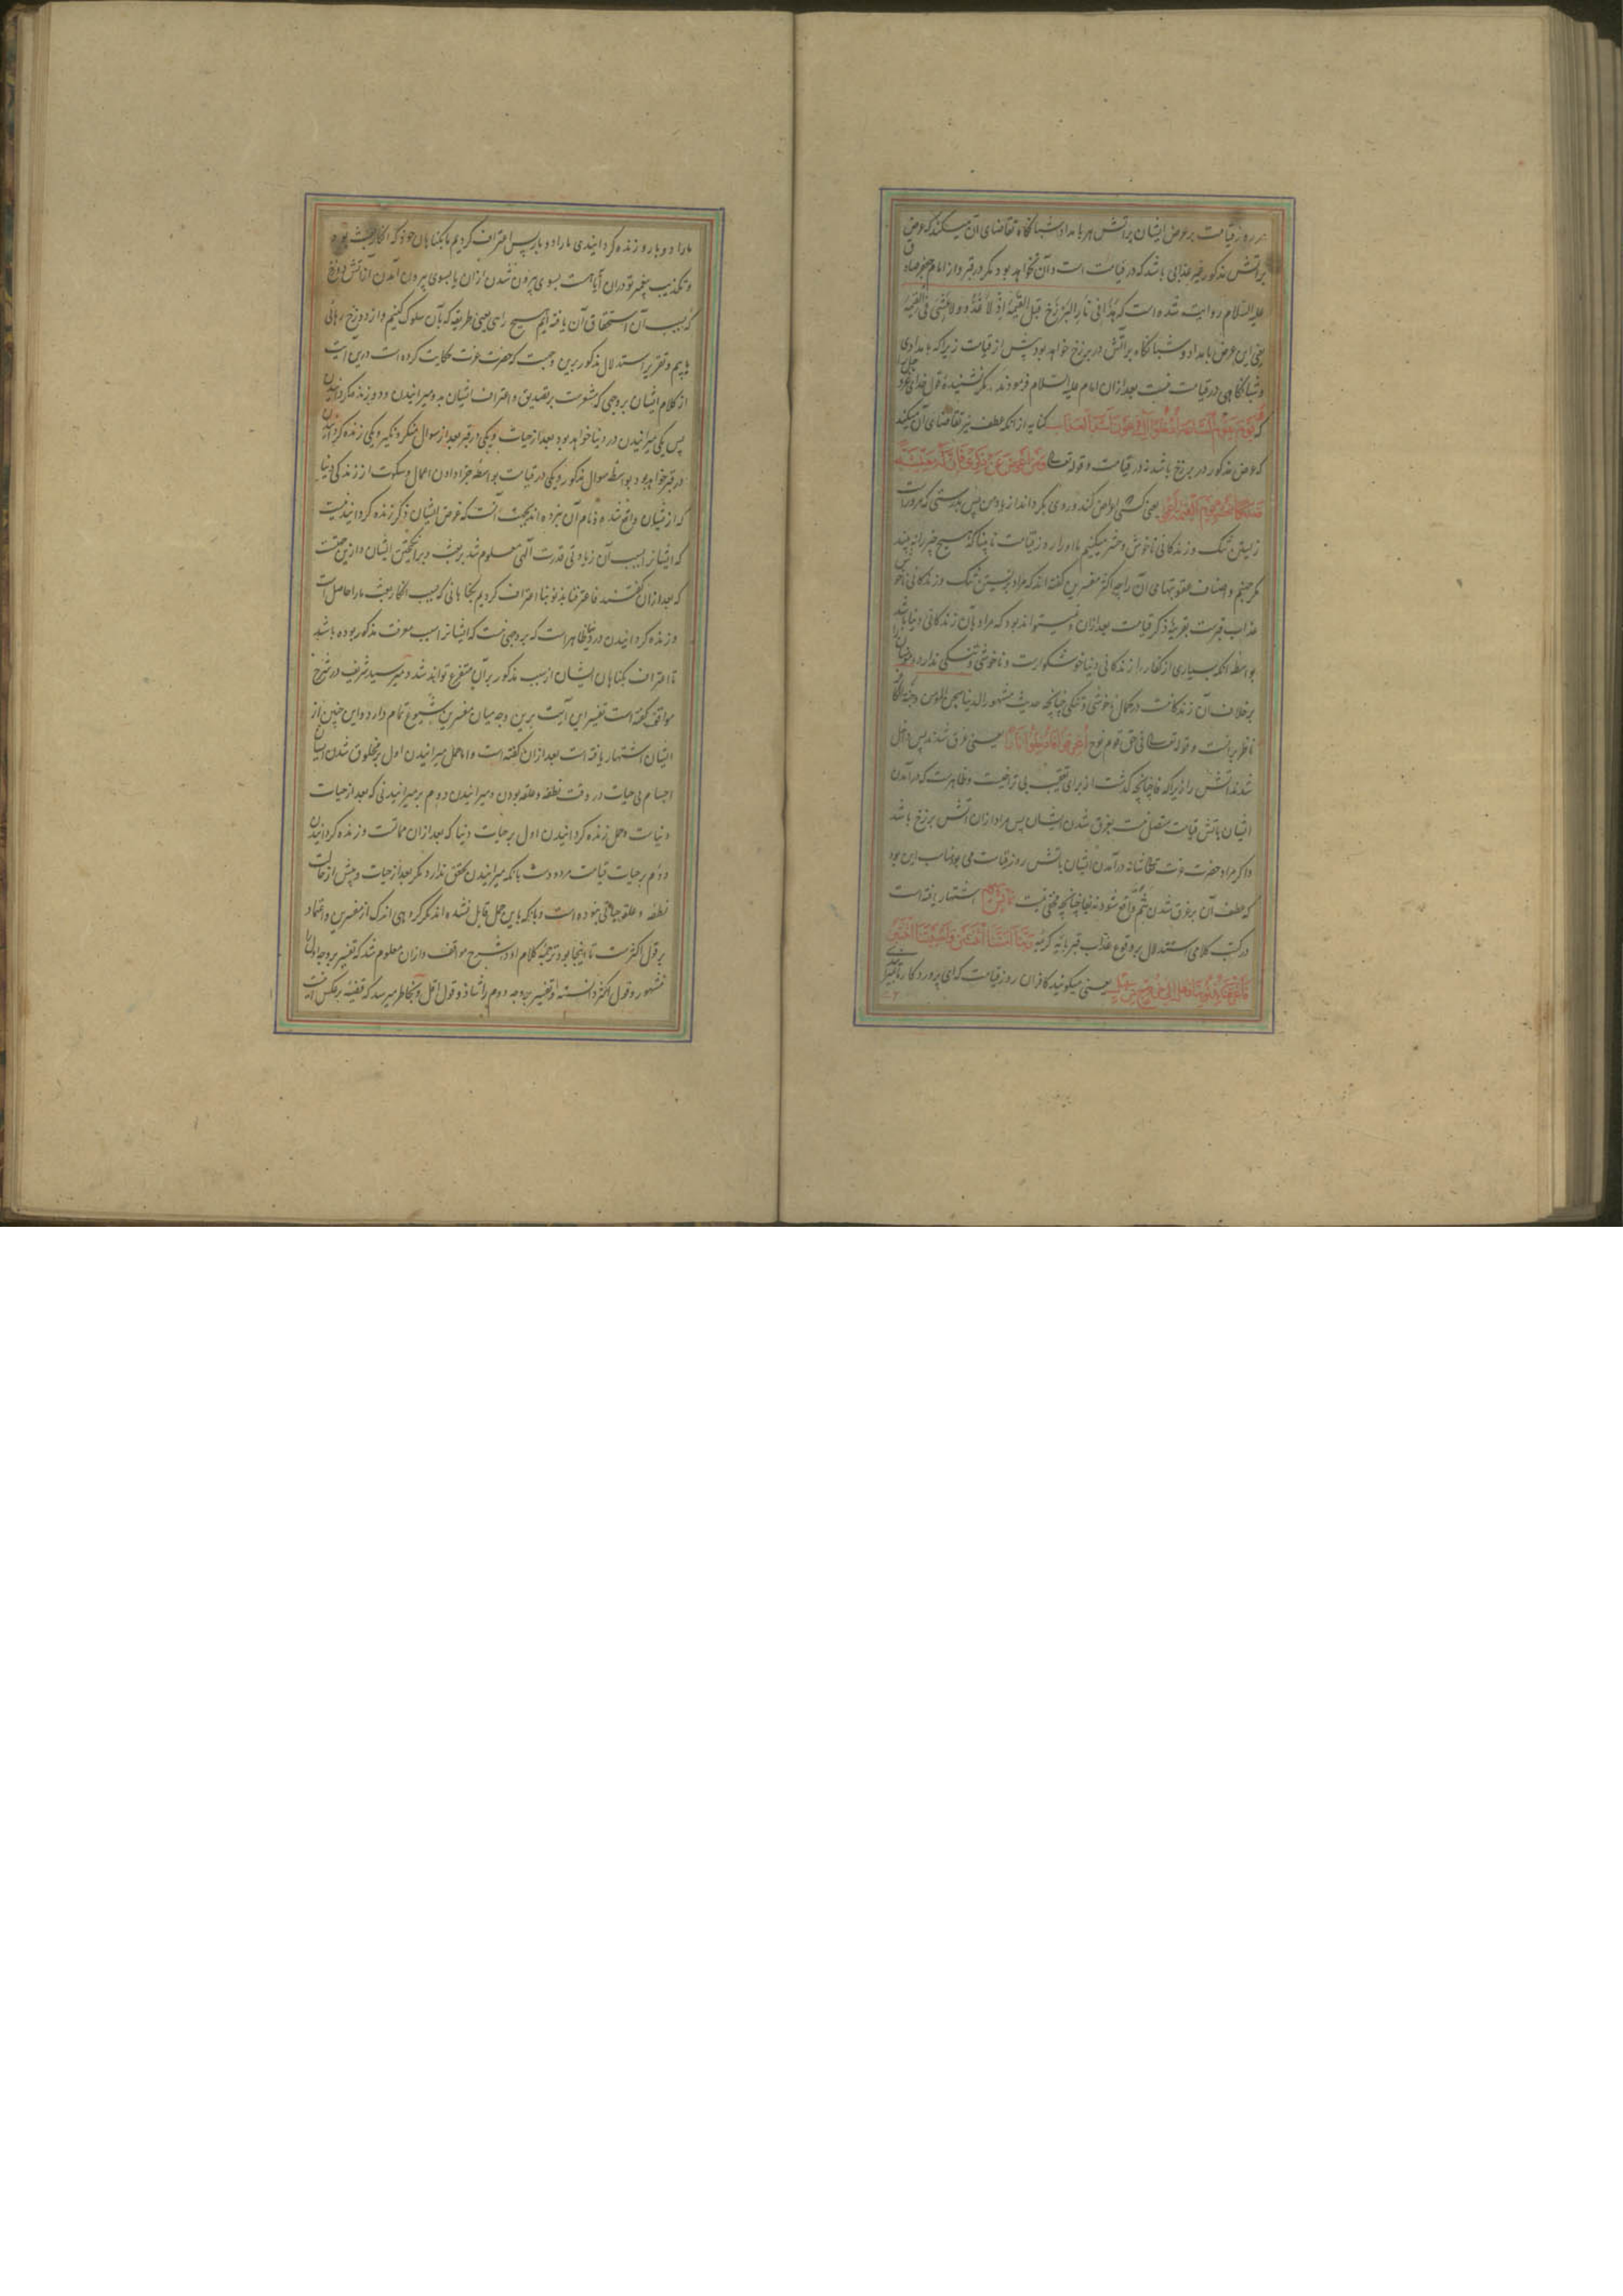 روز قیامت بر عرض ایشان بر آتش هر بامداد و شبانگاه تقاضای آن میکند که عرض
بر آتش مذکور غیر عذابی باشد که در قیامت است و آن نخواهد بود مگر در قبر و از امام جعفر صادق
علیه السلام روایت شده است که هذا فی نار البرزخ قبل القیمة اذ لا غدو و لا عشی فی القیمة
یعنی این عرض بامداد و شبانگاه بر آتش در برزخ خواهد بود پیش از قیامت زیرا که بامدادی
و شبانگاهی در قیامت نیست بعد از آن امام علیه السلام فرمودند مگر نشنیدهٔ قول خدای عز و جل را
که وَيَوْمَ تَقُومُ السَّاعَةُ أَدْخِلُوا آلَ فِرْعَوْنَ أَشَدَّ الْعَذَابِ کنایه از آنکه عطف نیز تقاضای آن میکند
که عرض مذکور در برزخ باشد نه در قیامت و قوله تعالی وَمَنْ أَعْرَضَ عَنْ ذِكْرِي فَإِنَّ لَهُ مَعِيشَةً
ضَنْكًا وَنَحْشُرُهُ يَوْمَ الْقِيَامَةِ أَعْمَى یعنی کسی اعراض کند و روی بگرداند از یاد من پس بدرستی که مر او راست
زیستن تنگ و زندگانی ناخوش و حشر میکنیم ما او را روز قیامت نابینا که هیچ چیز را نه بیند
مگر جهنم و اصناف عقوبتهای آن را چه اکثر مفسرین گفته اند که مراد بزیستن تنگ و زندگانی ناخوش
عذاب قبرست بقرینهٔ ذکر قیامت بعد از آن و نمیتواند بود که مراد بآن زندگانی دنیا باشد
بواسطه آنکه بسیاری از کفار را زندگانی دنیا خوشگوارست و ناخوشی و تنگی ندارد و مؤمنان را
بر خلاف آن زندگانیست در کمال ناخوشی و تنگی چنانچه حدیث مشهور الدنیا سجن المؤمن و جنة الکافر
ناظر بر آنست و قوله تعالی فی حق قوم نوح أُغْرِقُوا فَأُدْخِلُوا نَارًا یعنی غرق شدند پس داخل
شدند آتش را زیرا که فا چنانچه گذشت از برای تعقیب بی تراخیست و ظاهرست که درآمدن
ایشان بآتش قیامت متصل نیست بغرق شدن ایشان پس مراد از آن آتش برزخ باشد
و اگر مراد حضرت عزت تعالی شانه درآمدن ایشان بآتش روز قیامت می بود مناسب این بود
که عطف آن بر غرق شدن بثم واقع شود نه بفا چنانچه مخفی نیست اشتهار یافته است
در کتب کلامی استدلال بر وقوع عذاب قبر بآیه کریمه رَبَّنَا أَمَتَّنَا اثْنَتَيْنِ وَأَحْيَيْتَنَا اثْنَتَيْنِ
فَاعْتَرَفْنَا بِذُنُوبِنَا فَهَلْ إِلَى خُرُوجٍ مِنْ سَبِيلٍ یعنی میگویند کافران روز قیامت که ای پروردگار ما میرانیدی
ما را دو بار و زنده گردانیدی ما را دو بار پس اعتراف کردیم ما بگناهان خود که انکار بعث بود
و تکذیب پیغمبر تو در آن آیا هست بسوی بیرون شدن از آن یا بسوی بیرون آمدن از آتش دوزخ
که بسبب آن استحقاق آن یافته ایم هیچ راهی یعنی طریقه که بآن سلوک کنیم و از دوزخ رهائی
یابیم و تقریر استدلال مذکور برین وجهست که حضرت عزت حکایت کرده است درین آیت
از کلام ایشان بر وجهی که مشعرست بر تصدیق و اعتراف ایشان بدو میرانیدن و دو زنده گردانیدن
پس یکی میرانیدن در دنیا خواهد بود بعد از حیات و یکی در قبر بعد از سوال منکر و نکیر و یکی زنده گردانیدن
در قبر خواهد بود بواسطه سوال مذکور و یکی در قیامت بواسطه جزا دادن اعمال و سکوت از زندگی دنیا
که از ایشان واقع شده و نام آن نبرده اند بجهت آنست که غرض ایشان ذکر زنده گردانیدنیست
که ایشانرا بسبب آن زیادتی قدرت الهی معلوم شد بر بعث و برانگیختن ایشان و ازین جهتست
که بعد از آن گفتند فاعترفنا بذنوبنا اعتراف کردیم بگناهانی که بسبب انکار بعث ما را حاصل است
و زنده گردانیدن در دنیا ظاهراست که بر وجهی نیست که ایشانرا سبب معرفت مذکور بوده باشد
تا اعتراف بگناهان ایشان از سبب مذکور بر آن متفرع تواند شد و میر سید شریف در شرح
مواقف گفته است تفسیر این آیت برین وجه میان مفسرین شیوع تمام دارد و این چنین از
ایشان اشتهار یافته است بعد از آن گفته است و اما حمل میرانیدن اول بر مخلوق شدن ایشان
اجسام بی حیات در وقت نطفه و علقه بودن و میرانیدن دوم بر میرانیدنی که بعد از حیات
دنیاست و حمل زنده گردانیدن اول بر حیات دنیا که بعد از آن مماتست و زنده گردانیدن
دوم بر حیات قیامت مردودست بآنکه میرانیدن تحقق ندارد مگر بعد از حیات و پیش از حالت
نطفه و علقه حیاتی نبوده است و بآنکه باین حمل قابل نشده اند مگر گروهی اندک از مفسرین و اعتماد
بر قول اکثرست تا اینجا بود ترجمهٔ کلام او در شرح مواقف و از آن معلوم شد که تفسیر بر وجه اول را
مشهور و قول اکثر دانسته و تفسیر بوجه دوم را شاذ و قول اقل و بخاطر میرسد که قضیه برعکس است